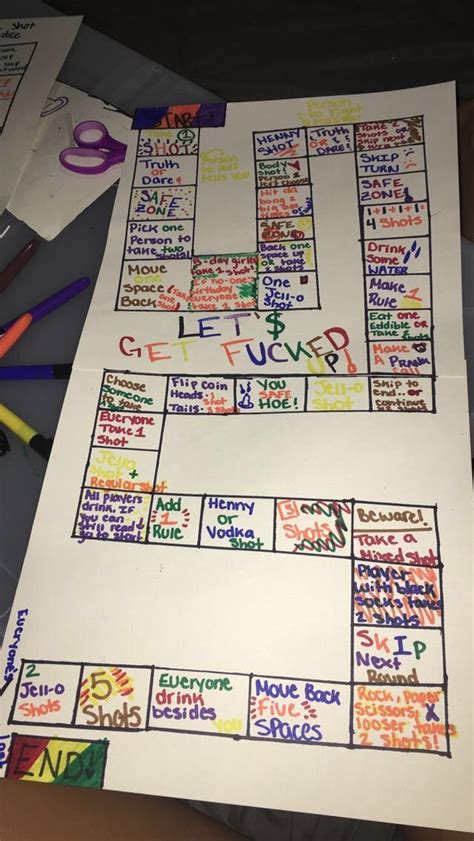 Shot
dice
START!
Take 1
SHOT!
Person
to left
tells you
Truth
or
Dare!
SAFE
ZONE
Pick one
Person to
take two
shots!
Move
one
Space
Back
B-day girl
take 1 shot!
If no-one
birthday
everyone
take 1 shot!
One
Jell-o
Shot
Back one
space up
or take
2 shots!
SAFE
ZONE
Hit da
bong 2
big ass
times
Body
shot!
Person 2
left choose
HENNY
SHOT
Person
to right
Truth
or
Dare!
Take 2
Shots or
skip next
turn!
SKIP
TURN
SAFE
ZONE!
1+1+1+1
4 Shots
Drink
Some
WATER
Make
1
Rule
Eat one
Eddible or
Take 2
Shots
Make
A
Prank
Call
LET'$
GET FUCKED
UP!
Skip to
end.. or
continue
Jell-o
Shot
YOU
SAFE
HOE!
Flip coin
Heads: 1 shot
Tails: 3 shots
Choose
Someone
to take
a shot
Everyone
Take 1
Shot
Jello
Shot +
Regular shot
All players
drink. IF
you can
still read
go to start
Add
1
Rule
Henny
or
Vodka
Shot
3
Shots
Beware!
Take a
Mixed shot
Player
With black
Socks takes
2 Shots
SKIP
Next
Round
Rock, paper
Scissors,
looser takes
2 shots!
Move Back
Five
SPACES
Everyone
drink
besides
you
5
Shots
2
Jell-o
Shots
Everyones
last
END!